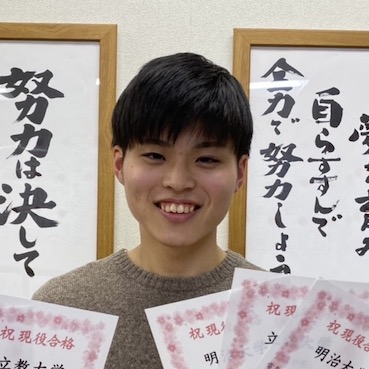 努力は決して
全力で努力しよう
自らすすんで
祝 現役合格
立教大学
祝 現役合格
明
祝 現役合格
立
祝 現役合格
明治大